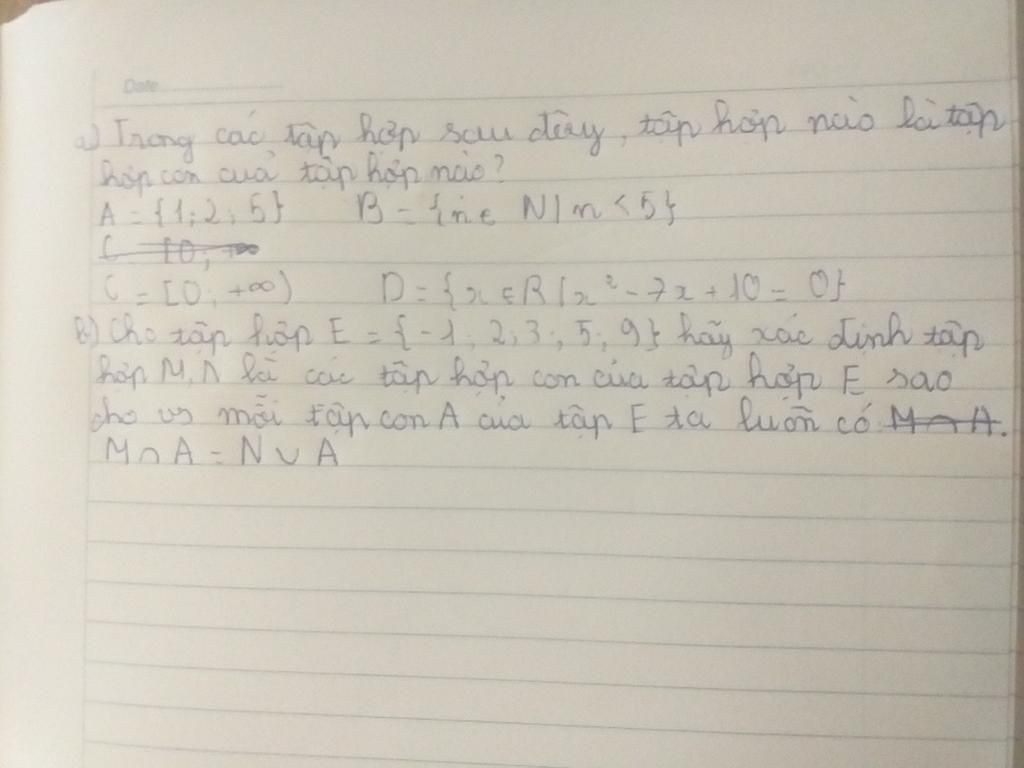 Date
a) Trong các tập hợp sau đây, tập hợp nào là tập
hợp con của tập hợp nào?
A = {1; 2; 5} B = {n ∈ N | n < 5}
C = [0; +∞
C = [0; +∞) D = {x ∈ R | x² - 7x + 10 = 0}
b) Cho tập hợp E = {-1; 2; 3; 5; 9} hãy xác định tập
hợp M, N là các tập hợp con của tập hợp E sao
cho vs mỗi tập con A của tập E ta luôn có M ∩ A.
M ∩ A = N ∪ A